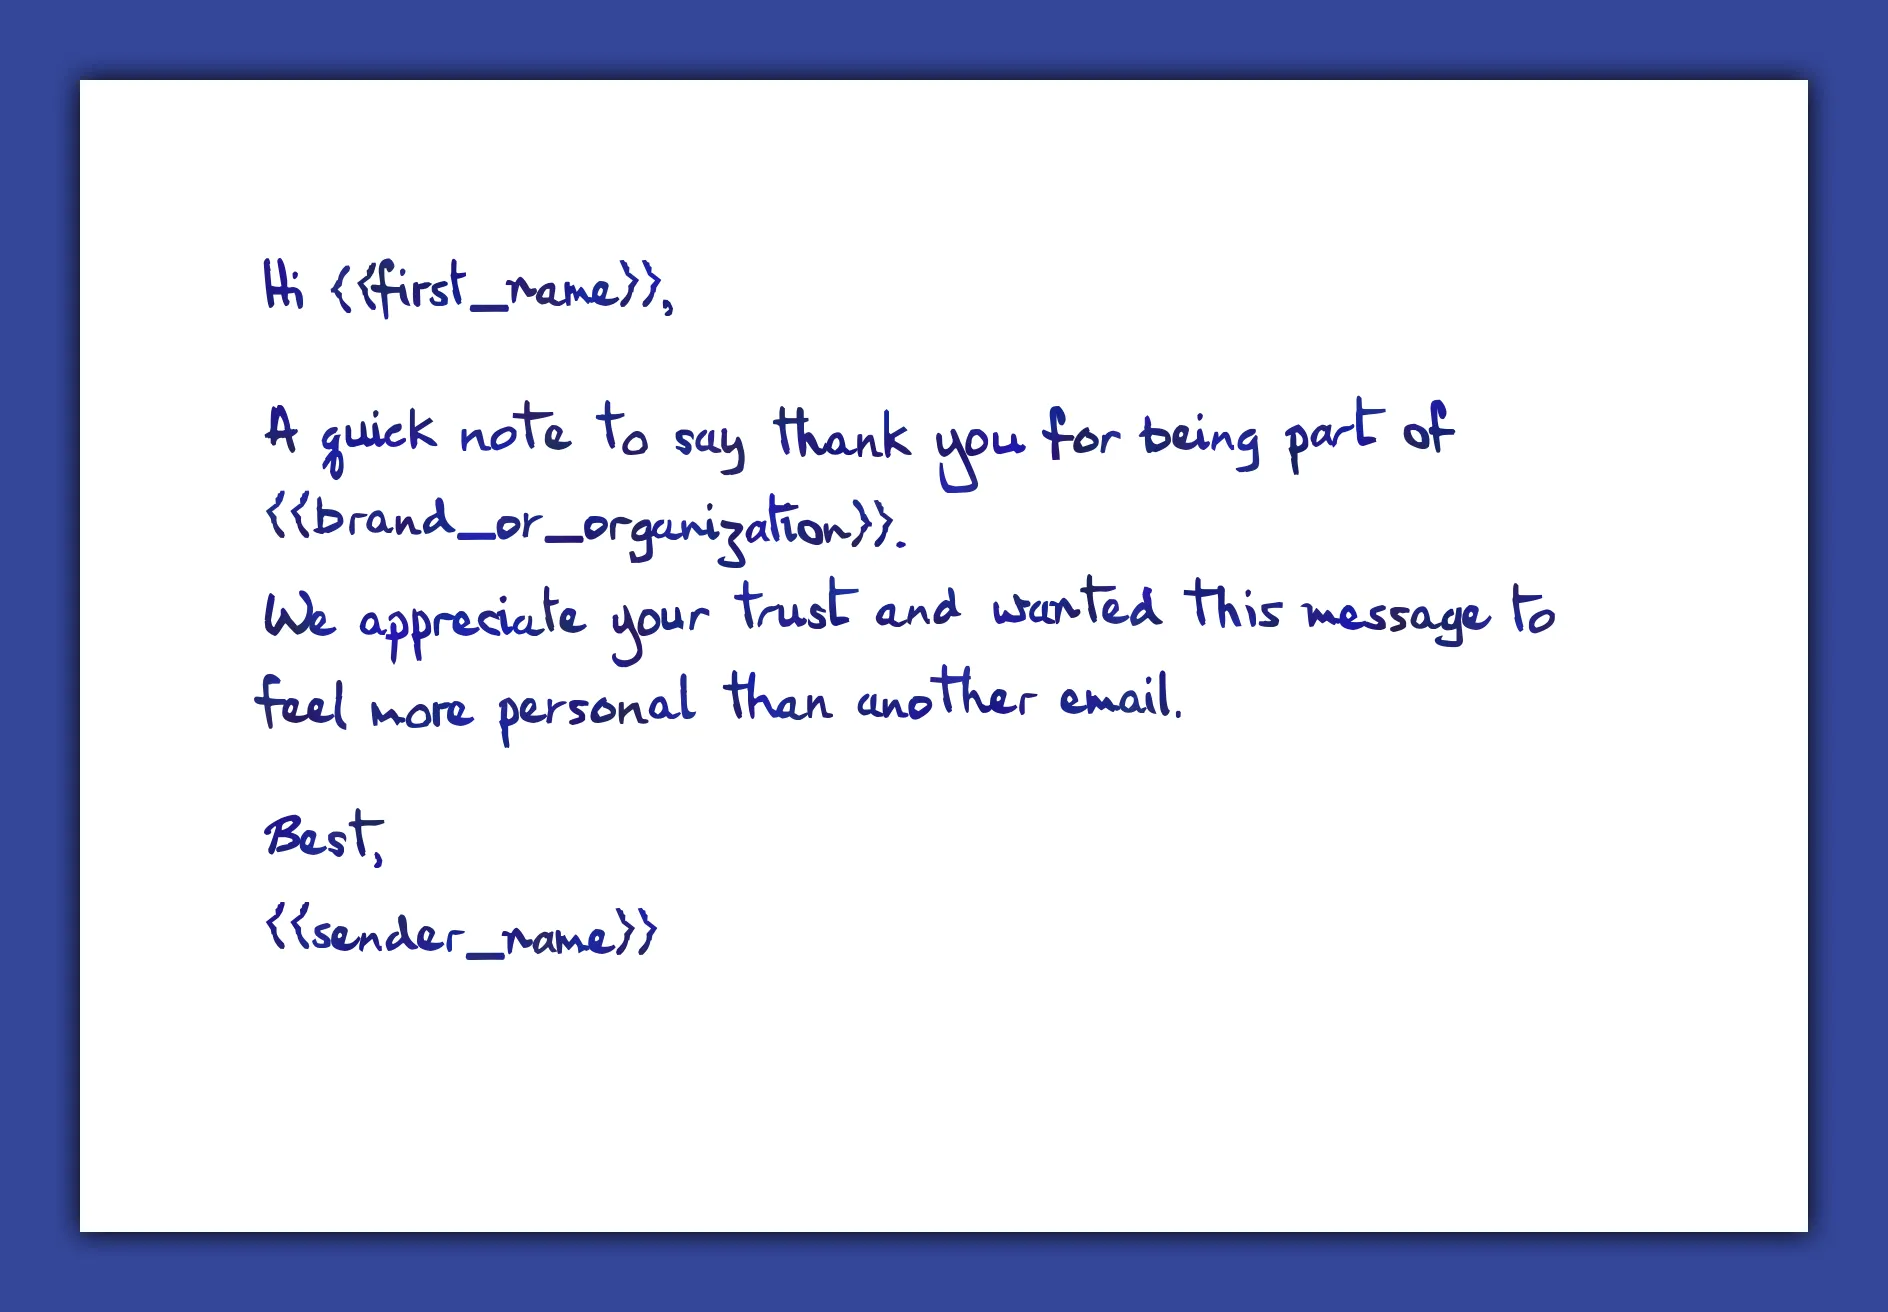 Hi {{first_name}},
A quick note to say thank you for being part of
{{brand_or_organization}}.
We appreciate your trust and wanted this message to
feel more personal than another email.
Best,
{{sender_name}}